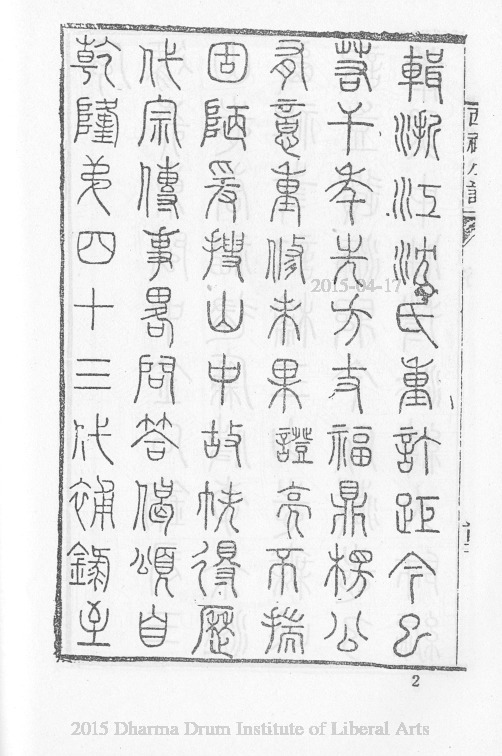 輯浙江沈氏重訂距今已
若干秊先方丈福鼎楞公
有意重修未果證亮不揣
固陋爰搜山中故帙得歷
代宗傳事畧問答偈頌自
乾隆弟四十三代補鐫至
2015-04-17
2
2015 Dharma Drum Institute of Liberal Arts